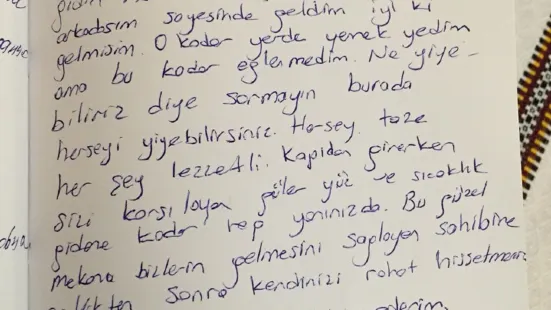 arkadaşım sayesinde geldim iyi ki
gelmişim. O kadar yerde yemek yedim
ama bu kadar eğlenmedim. Ne yiye-
biliriz diye sormayın burada
herşeyi yiyebilirsiniz. Herşey taze
her şey lezzetli. Kapıdan girerken
sizi karşılayan güler yüz ve sıcaklık
gidene kadar hep yanınızda. Bu güzel
mekana bizlerin gelmesini sağlayan sahibine
sonra kendinizi rahat hissetmeniz